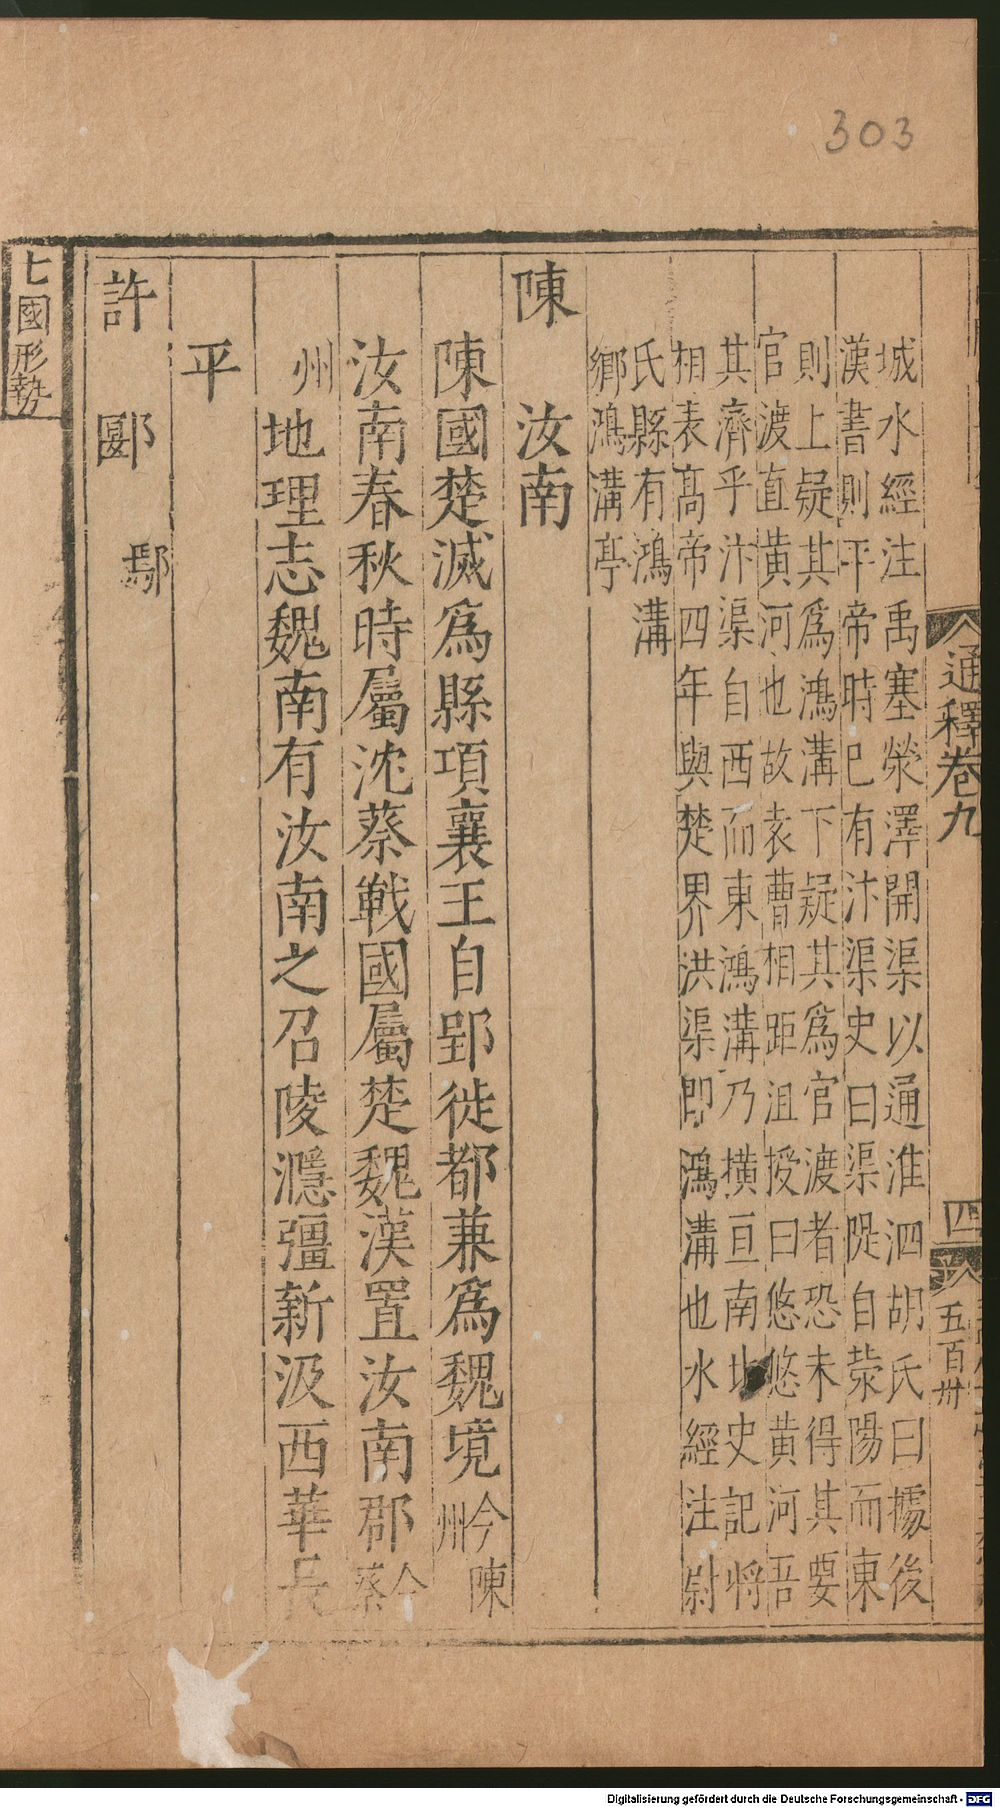 303
通釋卷九
四
五百卅
城水經注禹塞滎澤開渠以通淮泗胡氏曰㯫後
漢書則平帝時已有汴渠史曰渠隄自滎陽而東
則上疑其為鴻溝下疑其為官渡者恐未得其要
官渡直黄河也故袁曹相距沮授曰悠悠黄河吾
其濟乎汴渠自西而東鴻溝乃横亘南北史記將
相表髙帝四年與楚界洪渠即鴻溝也水經注尉
氏縣有鴻溝
鄉鴻溝亭
陳 汝南
陳國楚滅為縣項襄王自郢徙都兼為魏境今陳
州
汝南春秋時屬沈蔡戰國屬楚魏漢置汝南郡今
蔡
州地理志魏南有汝南之召陵㶏彊新汲西華長
平
許 郾 鄢
七國形勢
Digitalisierung gefördert durch die Deutsche Forschungsgemeinschaft - DFG